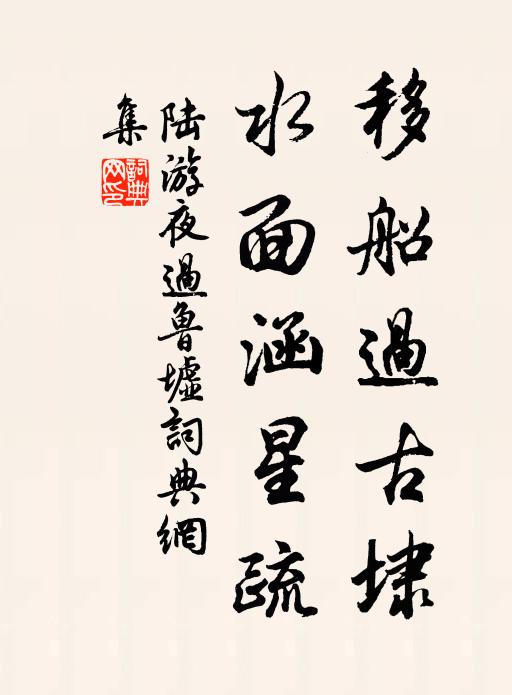 移船過古埭
水面涵星疏
陸游夜過魯墟詞典網
集
詞典
网印